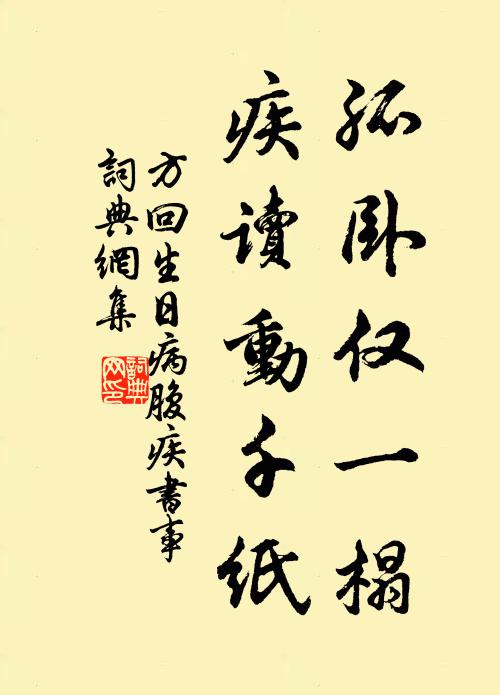 孤卧仅一榻
疾讀動千紙
方回生日病腹疾書事
詞典網集
詞典网印